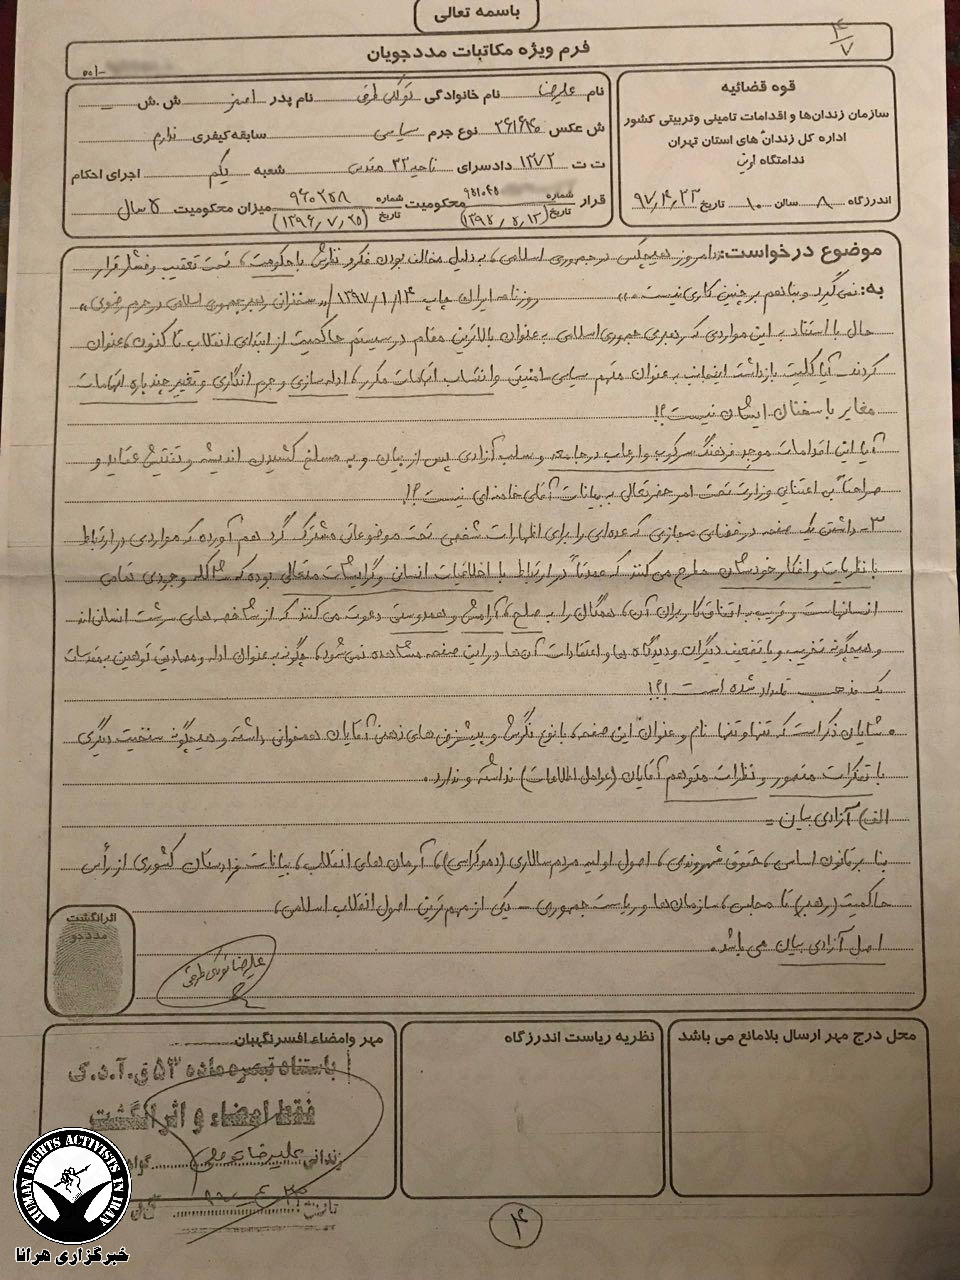 باسمه تعالی
۴/۷
فرم ویژه مکاتبات مددجویان
قوه قضائیه
سازمان زندان‌ها و اقدامات تامینی و تربیتی کشور
اداره کل زندان های استان تهران
ندامتگاه اوین
اندرزگاه ۸ سالن ۱۰ تاریخ ۹۷/۴/۲۳
نام علیرضا نام خانوادگی توکلی طرقی نام پدر اصغر ش.ش
ش عکس ۲۶۱۶۴۰ نوع جرم سیاسی سابقه کیفری ندارم
ت ت ۱۳۷۲ دادسرای ناحیه ۳۳ مقدس شعبه یکم اجرای احکام
قرار شماره تاریخ (۱۳۹۵/۵/۱۲) محکومیت شماره ۹۶۰۲۵۸ تاریخ (۱۳۹۶/۷/۲۵) میزان محکومیت ۵ سال
موضوع درخواست: «امروز هیچکس در جمهوری اسلامی، به دلیل مخالف بودن فکر و نظرش با حکومت، تحت تعقیب و فشار قرار
به: نمی‌گیرد و بنا هم بر چنین کاری نیست.» روزنامه ایران چاپ ۱۳۹۷/۱/۱۴ «سخنرانی رهبر جمهوری اسلامی در حرم رضوی»
حال با استناد به این مواردی که رهبری جمهوری اسلامی به عنوان بالاترین مقام در سیستم حاکمیت از ابتدای انقلاب تا کنون، عنوان
کردند، آیا کلیت بازداشت اینجانب به عنوان متهم سیاسی امنیتی و انتساب اتهامات مکرر، ادله سازی و جرم انگاری و تغییر چندباره اتهامات
مغایر با سخنان ایشان نیست؟!
آیا این اقدامات موجد فرهنگ سرکوب و ارعاب در جامعه و سلب آزادی پس از بیان و به مسلخ کشیدن اندیشه و تفتیش عقاید و
صراحتاً بی اعتنایی وزارت تحت امر جعفرتعال به بیانات آقای خامنه‌ای نیست؟!
۳- داشتن یک صفحه در فضای مجازی که عده‌ای را برای اظهارات شخصی تحت موضوعاتی مشترک گرد هم آورده که مواردی در ارتباط
با نظریات و افکار خودشان مطرح می‌کنند که عمدتاً در ارتباط با اخلاقیات انسانی و گرایشات متعالی بوده که شاکله وجودی تمامی
انسانهاست و قریب به اتفاق کاربران آن، همگان را به صلح، آرامش و همدوستی دعوت می‌کنند که از شاخصه های سرشت انسانی‌اند
و هیچگونه تخریب و یا تضعیف دیگران و دیدگاه ها و اعتقادات آن‌ها در این صفحه مشاهده نمی‌شود، چگونه به عنوان ادله و مصادیق توهین به مقدسات
یک مذهب قلمداد شده است ؟!
• شایان ذکر است که تنها و تنها نام و عنوان این صفحه، با نوع نگرش و پیش‌فرض های ذهنی آقایان همخوانی داشته و هیچگونه سنخیت دیگری
با تفکرات متصور و نظرات متوهم آقایان (عوامل اطلاعات) نداشته و ندارد.
الف) آزادی بیان =
بنا بر قانون اساسی، حقوق شهروندی، اصول اولیه مردم سالاری (دموکراسی)، آرمان های انقلاب، بیانات فرادستان کشوری از رأس
حاکمیت (رهبر) تا مجلس، سازمان‌ها و ریاست جمهوری - یکی از مهم‌ترین اصول انقلاب اسلامی،
اصل آزادی بیان می باشد.
اثر انگشت
مددجو
علیرضا توکلی طرقی
محل درج مهر ارسال بلامانع می باشد
نظریه ریاست اندرزگاه
مهر وامضاء افسرنگهبان
باستناد تبصره ماده ۵۳ ق.آ.د.ک
فقط امضاء و اثر انگشت
زندانی علیرضا توکلی گواه
تاریخ
۴
HUMAN RIGHTS ACTIVISTS IN IRAN
خبرگزاری هرانا